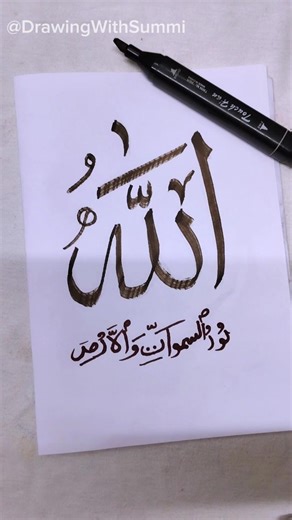 @DrawingWithSummi
اللّٰهُ
نُورُ السموَاتِ وَالْاَرْضِ